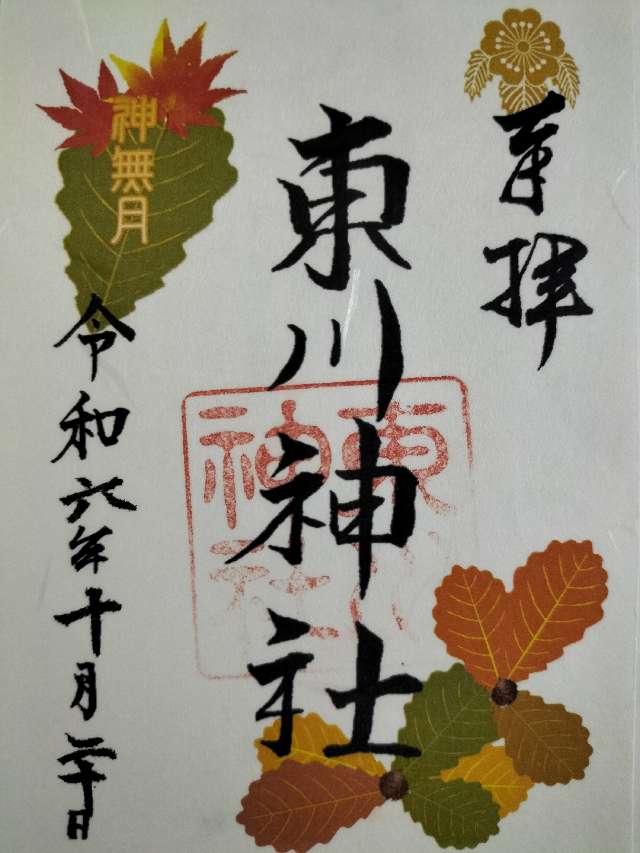 奉拝
東川神社
東川神社
神無月
令和六年十月二十日